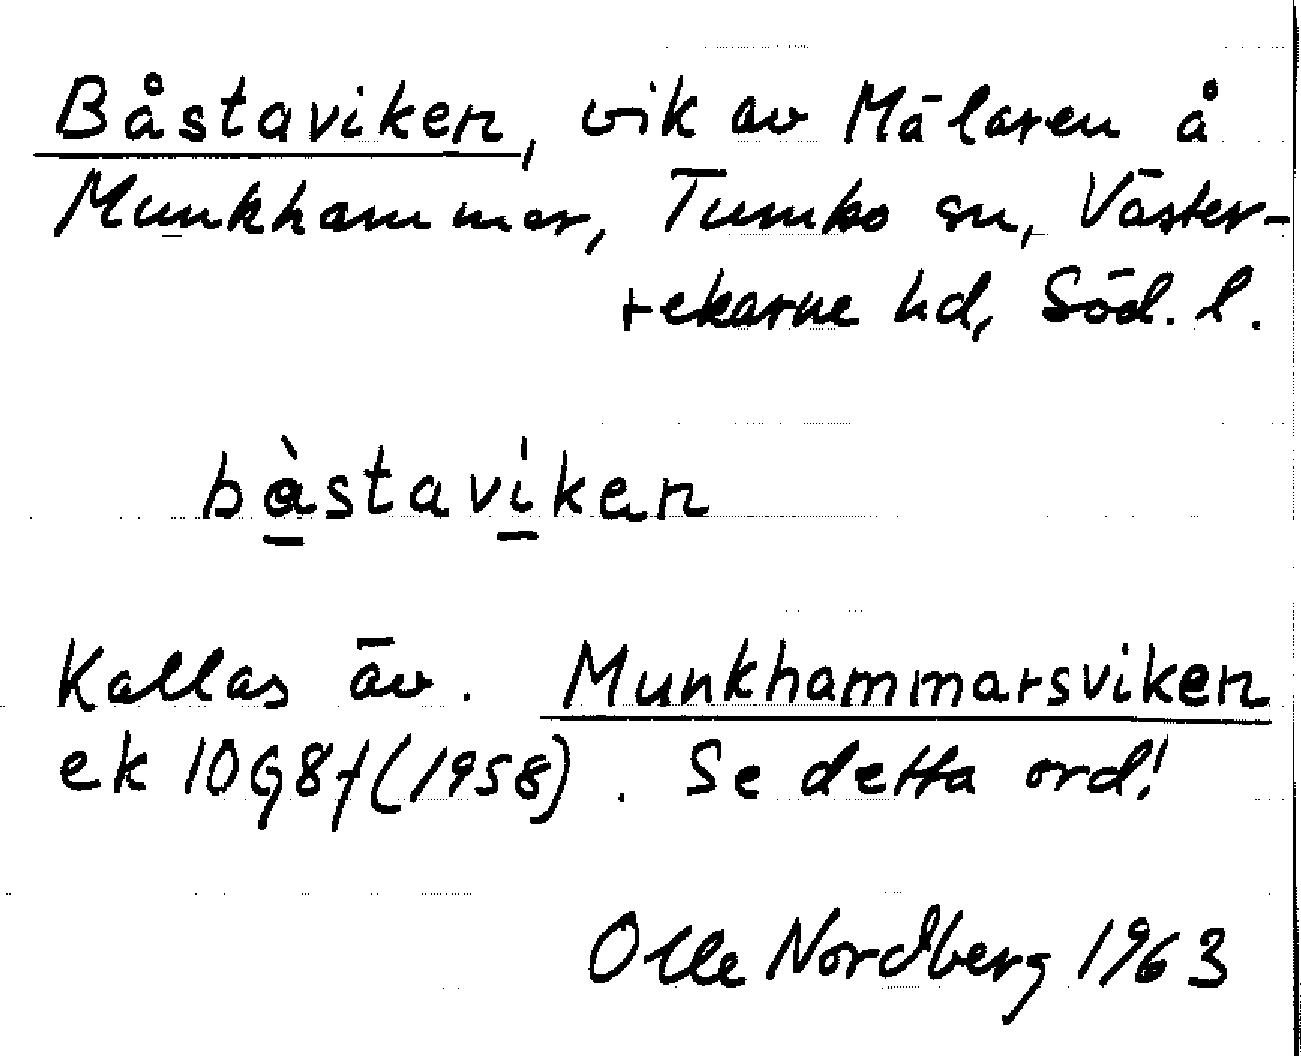 Båstaviken, vik av Mälaren å
Munkhammar, Tumbo sn, Väster-
rekarne hd, Söd. l.
bàstaviken
Kallas äv. Munkhammarsviken
ek 10G8f (1958). Se detta ord!
Olle Nordberg 1963